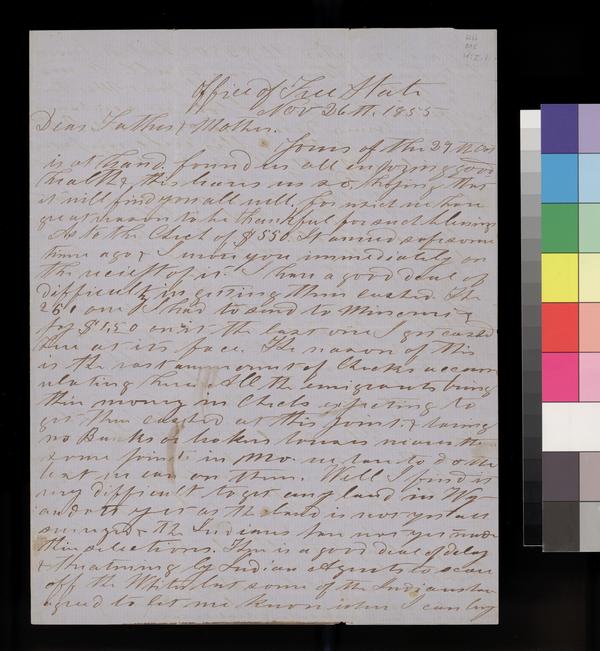 Office of Free State
Nov 26th, 1855
Dear Father & Mother.
Yours of the 29th
is at hand. found us all enjoying good
health, this leaves us so, hoping that
it will find you all well. for which we have
great reason to be thankful for such blessings
As to the Check of $550. It arrived safe some
time ago & I wrote you immediately on
the reciept of it. I have a good deal of
difficulty in getting them cashed. The
one I had to send to Missouri &
pay $1,50 on it the last one I got cashed
here at its face. The reason of this
is the vast ammount of Checks accum
ulating here. All the emigrants bring
their money in Checks expecting to
get them cashed at this point. & having
no Banks or brokers houses nearer than
some points in Mo. we have to do the
best we can on them. Well I find it
very difficult to get any land in
as yet as the land is not yet all
surveyed & the Indians have not yet made
their selections. There is a good deal of delay
& threatening by Indian Agents to scare
off the Whites but some of the Indians have
agreed to let me know when I can buy